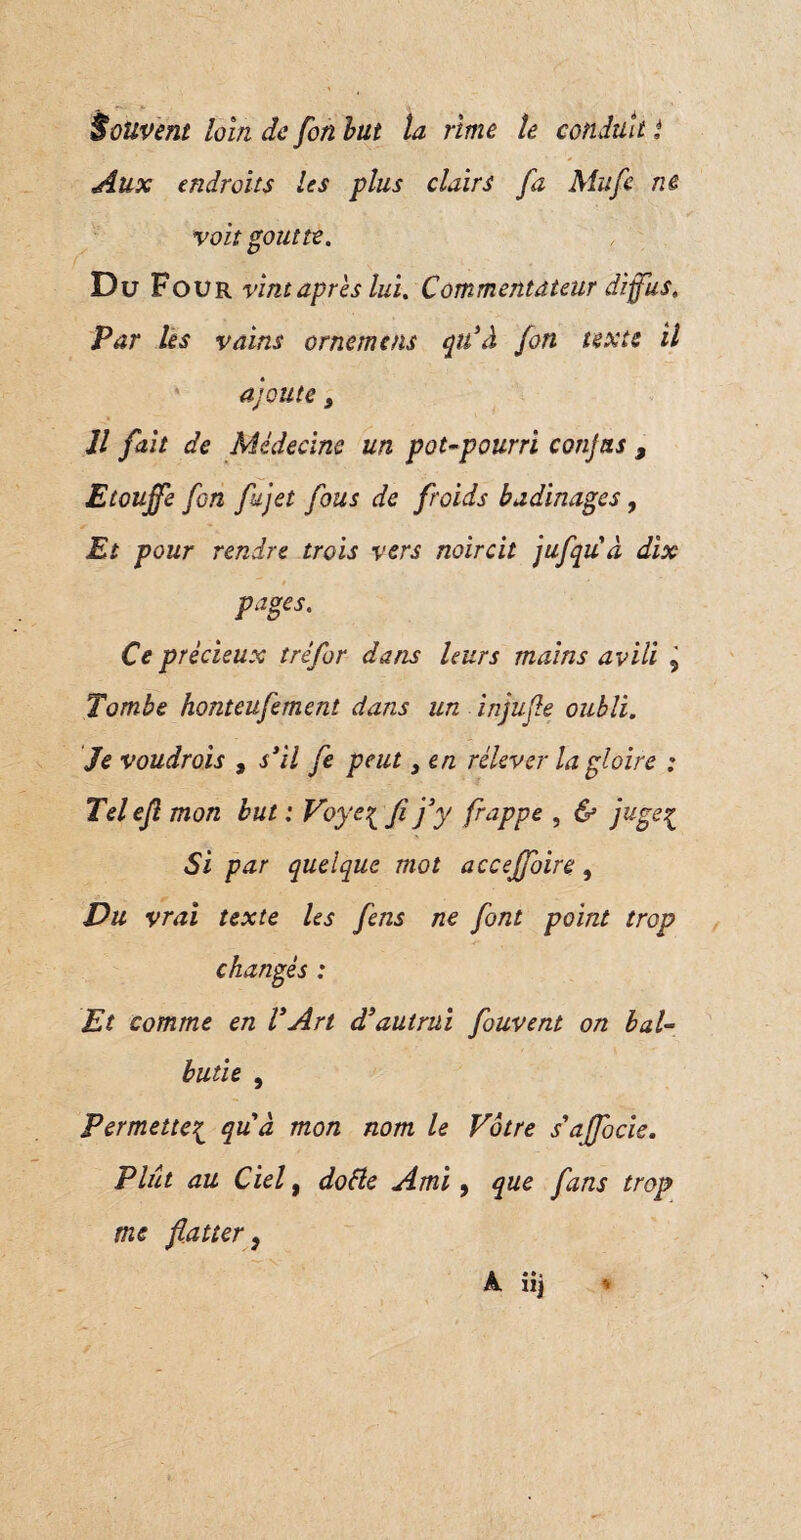 Souvent loin de ſon but la rime le conduit :
Aux endroits les plus clairs ſa Muſe ne
voit goutte.
DU FOUR vint après lui. Commentateur diffus,
Par les vains ornemens qu'à ſon texte il
ajoute,
Il fait de Médecine un pot-pourri confus,
Etouffe ſon ſujet ſous de froids badinages,
Et pour rendre trois vers noircit juſqu'à dix
pages.
Ce précieux tréſor dans leurs mains avili,
Tombe honteuſement dans un injuſte oubli.
Je voudrois, s'il ſe peut, en rélever la gloire :
Tel eſt mon but : Voyez ſi j'y frappe, & jugez
Si par quelque mot acceſſoire,
Du vrai texte les ſens ne ſont point trop
changés :
Et comme en l'Art d'autrui ſouvent on bal-
butie,
Permettez qu'à mon nom le Vôtre s'aſſocie.
Plût au Ciel, docte Ami, que ſans trop
me flatter,
A iij